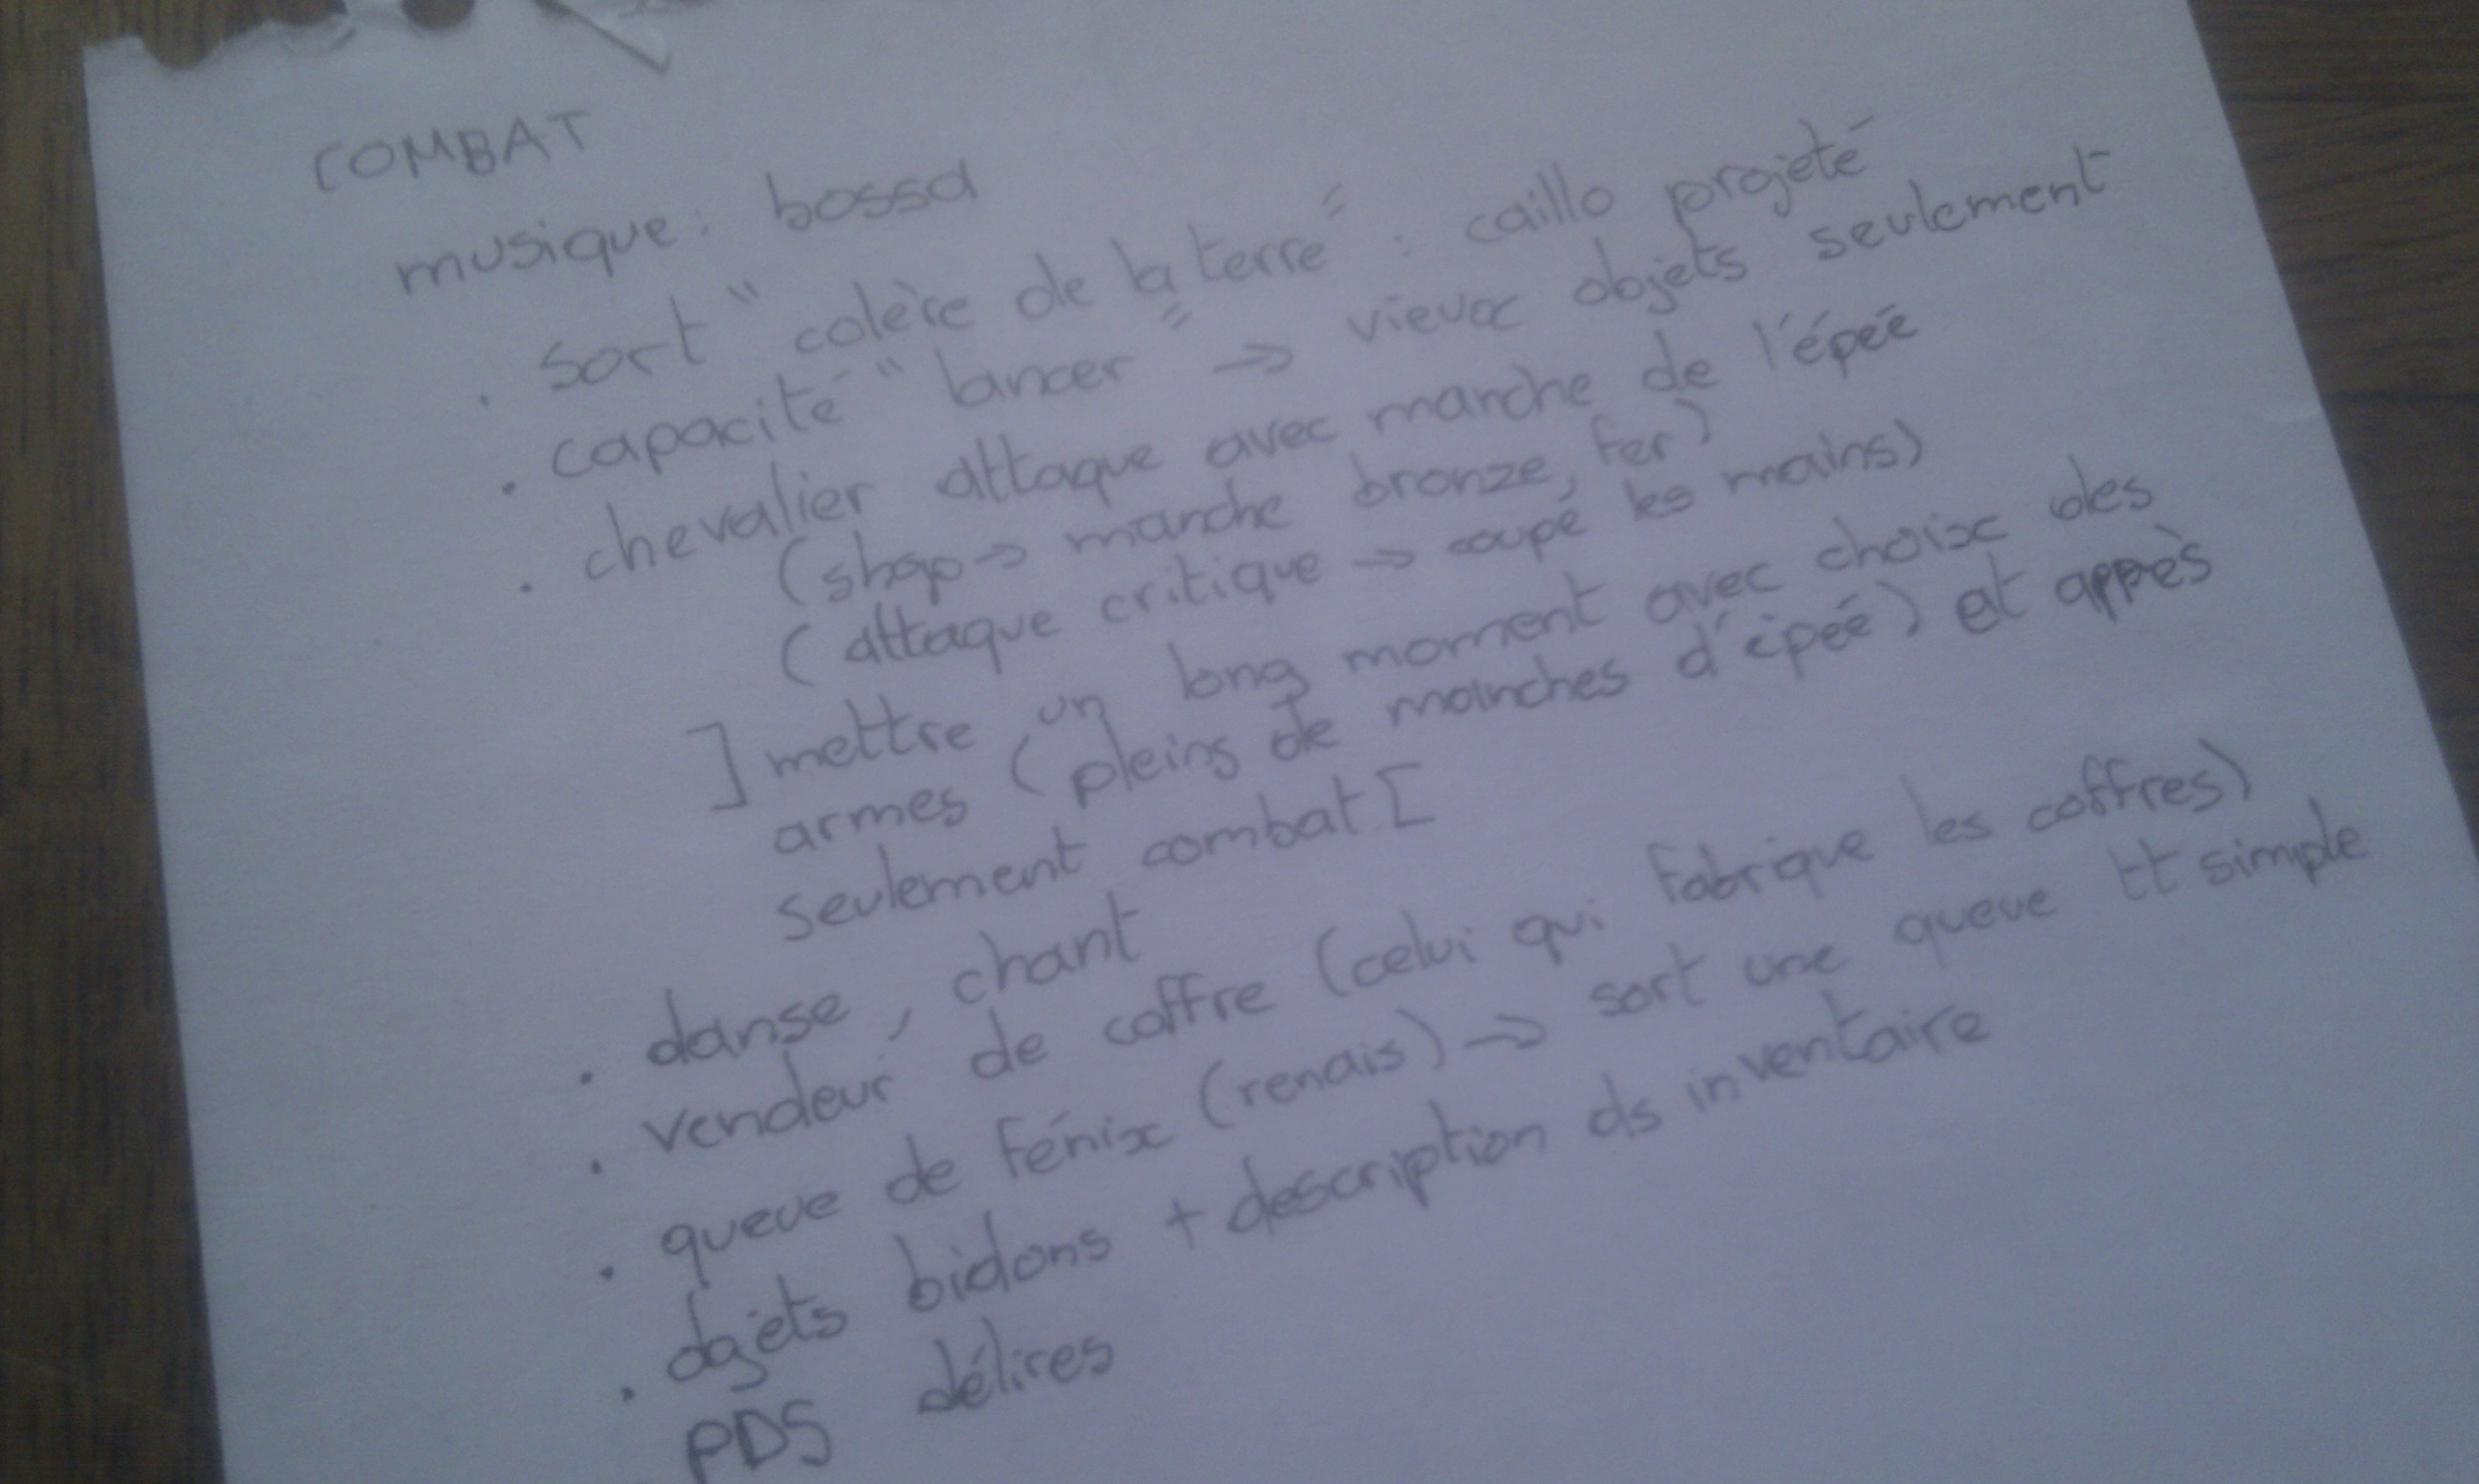 COMBAT
musique : bossa
. sort "colère de la terre" : caillo projeté
. capacité "lancer" → vieux objets seulement
. chevalier attaque avec manche de l'épée
(shop → manche bronze, fer)
(attaque critique → coupé les mains)
] mettre un long moment avec choix des
armes (pleins de manches d'épée) et apprès
seulement combat [
. danse, chant
. vendeur de coffre (celui qui fabrique les coffres)
. queue de fénix (renais) → sort une queue tt simple
. objets bidons + description ds inventaire
PDS délires